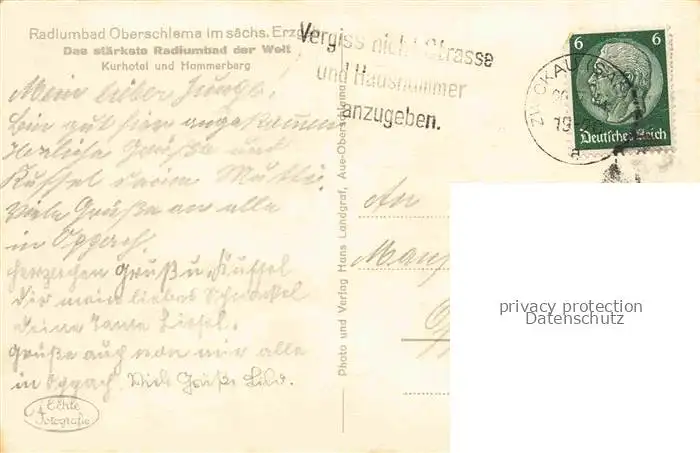 Radiumbad Oberschlema im sächs. Erzgeb
Das stärkste Radiumbad der Welt
Kurhotel und Hammerberg
Vergiss nicht Strasse
und Hausnummer
anzugeben.
6 6
Deutsches Reich
ZWICKAU (SACHS)
19
a
Mein lieber Junge!
Bin gut hier angekommen
Herzliche Grüße und
Küssel deine Mutti.
Viele Grüße an alle
in Oppach.
herzlichen Gruß u. Küssel
dir mein liebes
deine Tante Liesel.
Grüße auch von mir alle
in Oppach. Viele Grüße
Echte
Fotografie
Photo und Verlag Hans Landgraf, Aue-Oberschlema
An
privacy protection
Datenschutz